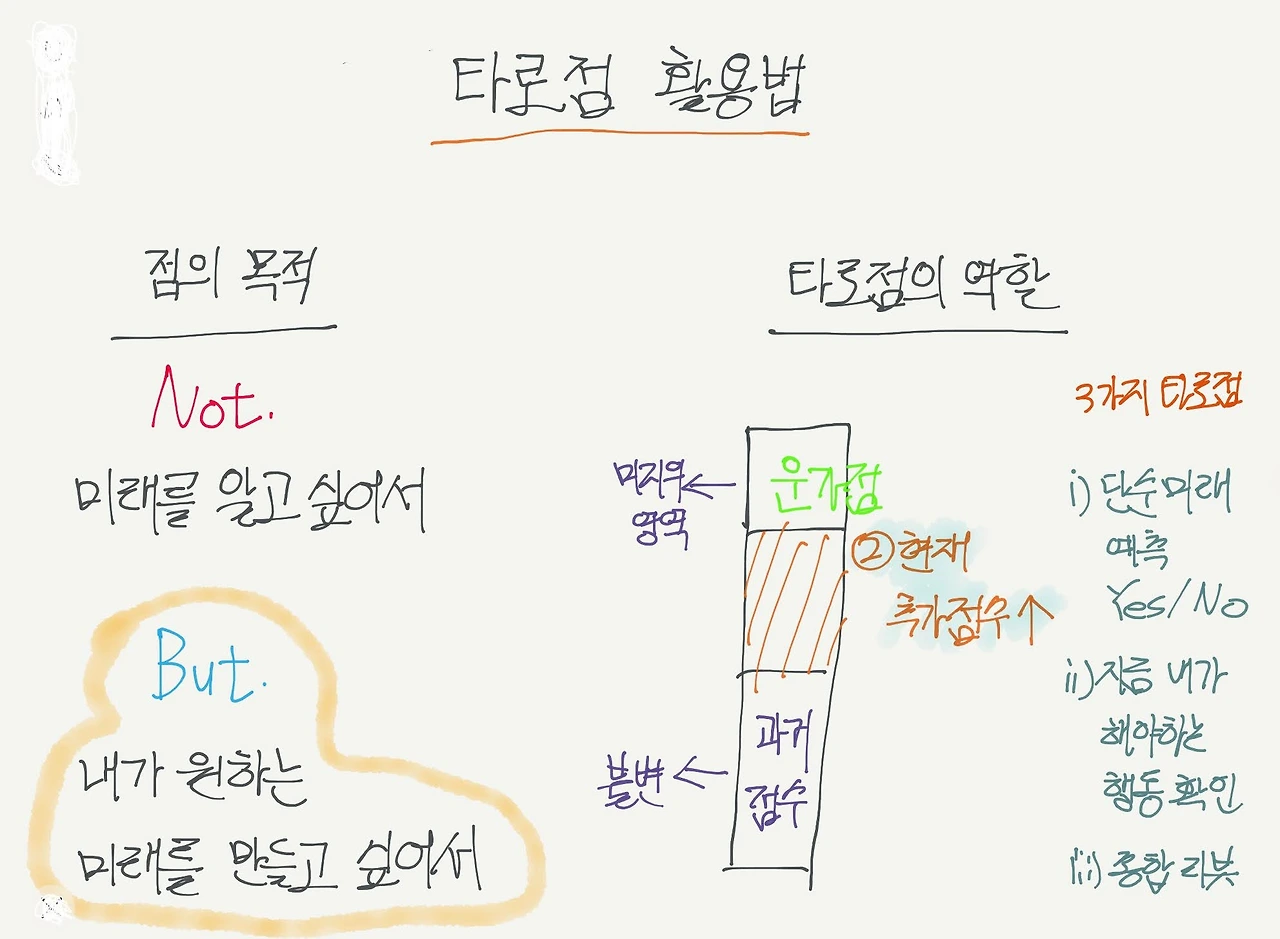 타로점 활용법
점의 목적
Not.
미래를 알고 싶어서
But.
내가 원하는
미래를 만들고 싶어서
타로점의 역할
미지의
영역
운가점
② 현재
추가점수↑
과거
점수
불변
3가지 타로점
i) 단순미래
예측
Yes/No
ii) 지금 내가
해야하는
행동 확인
iii) 종합 리뷰